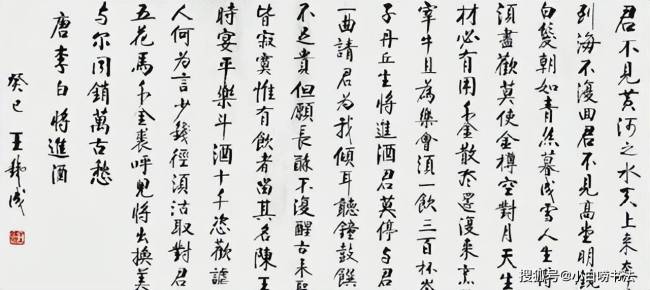 君不見黃河之水天上来奔
到海不復回君不見高堂明鏡
白髮朝如青絲暮成雪人生得
須盡歡莫使金樽空對月天生
材必有用千金散尽還復来烹
宰牛且為樂會須一飲三百杯岑
子丹丘生將進酒君莫停与君
一曲請君為我傾耳聽鐘鼓饌
不足貴但願長醉不復醒古来聖
皆寂寞惟有飲者留其名陳王
時宴平樂斗酒十千恣歡謔
人何為言少錢徑須沽取對君
五花馬千金裘呼兒將出換美
与尔同銷萬古愁
唐李白將進酒
癸巳王成
搜狐号@小白唠书法